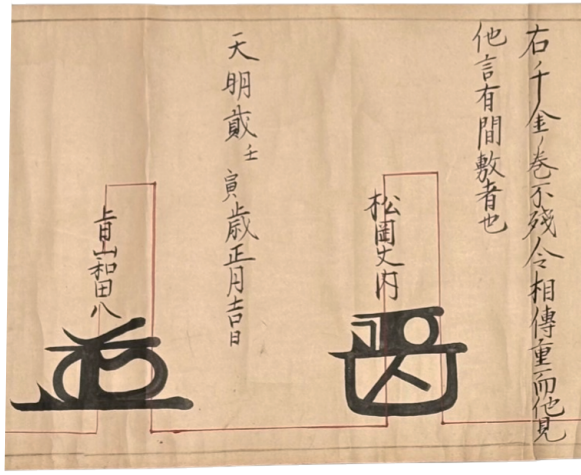 右ノ千金ノ巻不残令相傳重而他見
他言有間敷者也
松岡丈内
天明貮壬寅歳正月吉日
青山和田八